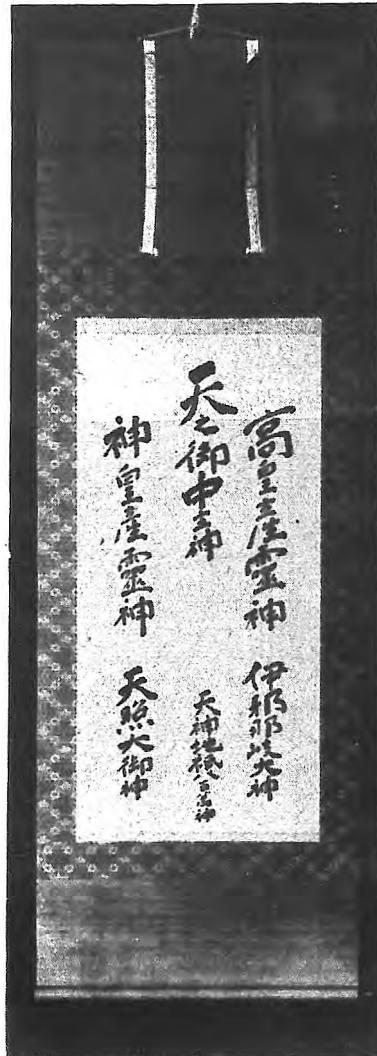 高皇産霊神
伊邪那岐大神
天之御中主神
天神地祇八百万神
神皇産霊神
天照大御神